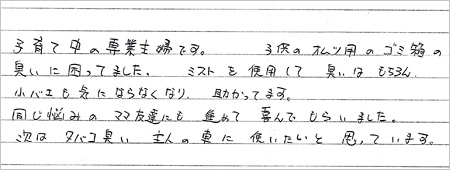 子育て中の専業主婦です。 子供のオムツ用のゴミ箱の
臭いに困ってました。 ミストを使用して臭いはもちろん
小バエも気にならなくなり、助かってます。
同じ悩みのママ友達にも進めて喜んでもらいました。
次はタバコ臭い主人の車に使いたいと思っています。